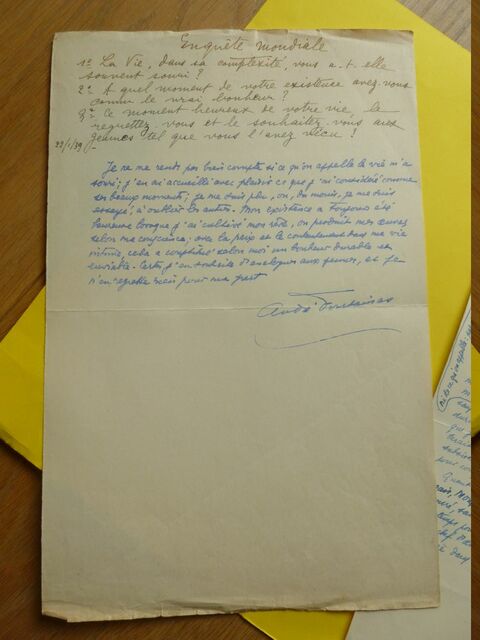 Enquête mondiale
1º La Vie, dans sa complexité, vous a-t-elle
souvent souri ?
2º A quel moment de votre existence avez-vous
connu le vrai bonheur ?
3º Ce moment heureux de votre vie, le
regrettez-vous et le souhaitez-vous aux
jeunes tel que vous l'avez vécu ?
23/1/39
Je ne me rends pas bien compte si ce qu'on appelle la vie m'a
souri ; j'en ai accueilli avec plaisir ce que j'ai considéré comme
ses beaux moments ; je me suis plu, ou, du moins, je me suis
essayé, à oublier les autres. Mon existence a toujours été
heureuse lorsque j'ai cultivé mon rêve, ou produit mes œuvres
selon ma conscience ; avec la paix et le contentement dans ma vie
intime, cela a constitué selon moi un bonheur durable et
enviable. Certes, j'en souhaite d'analogues aux jeunes, et je
n'en regrette rien pour ma part
André Fontainas